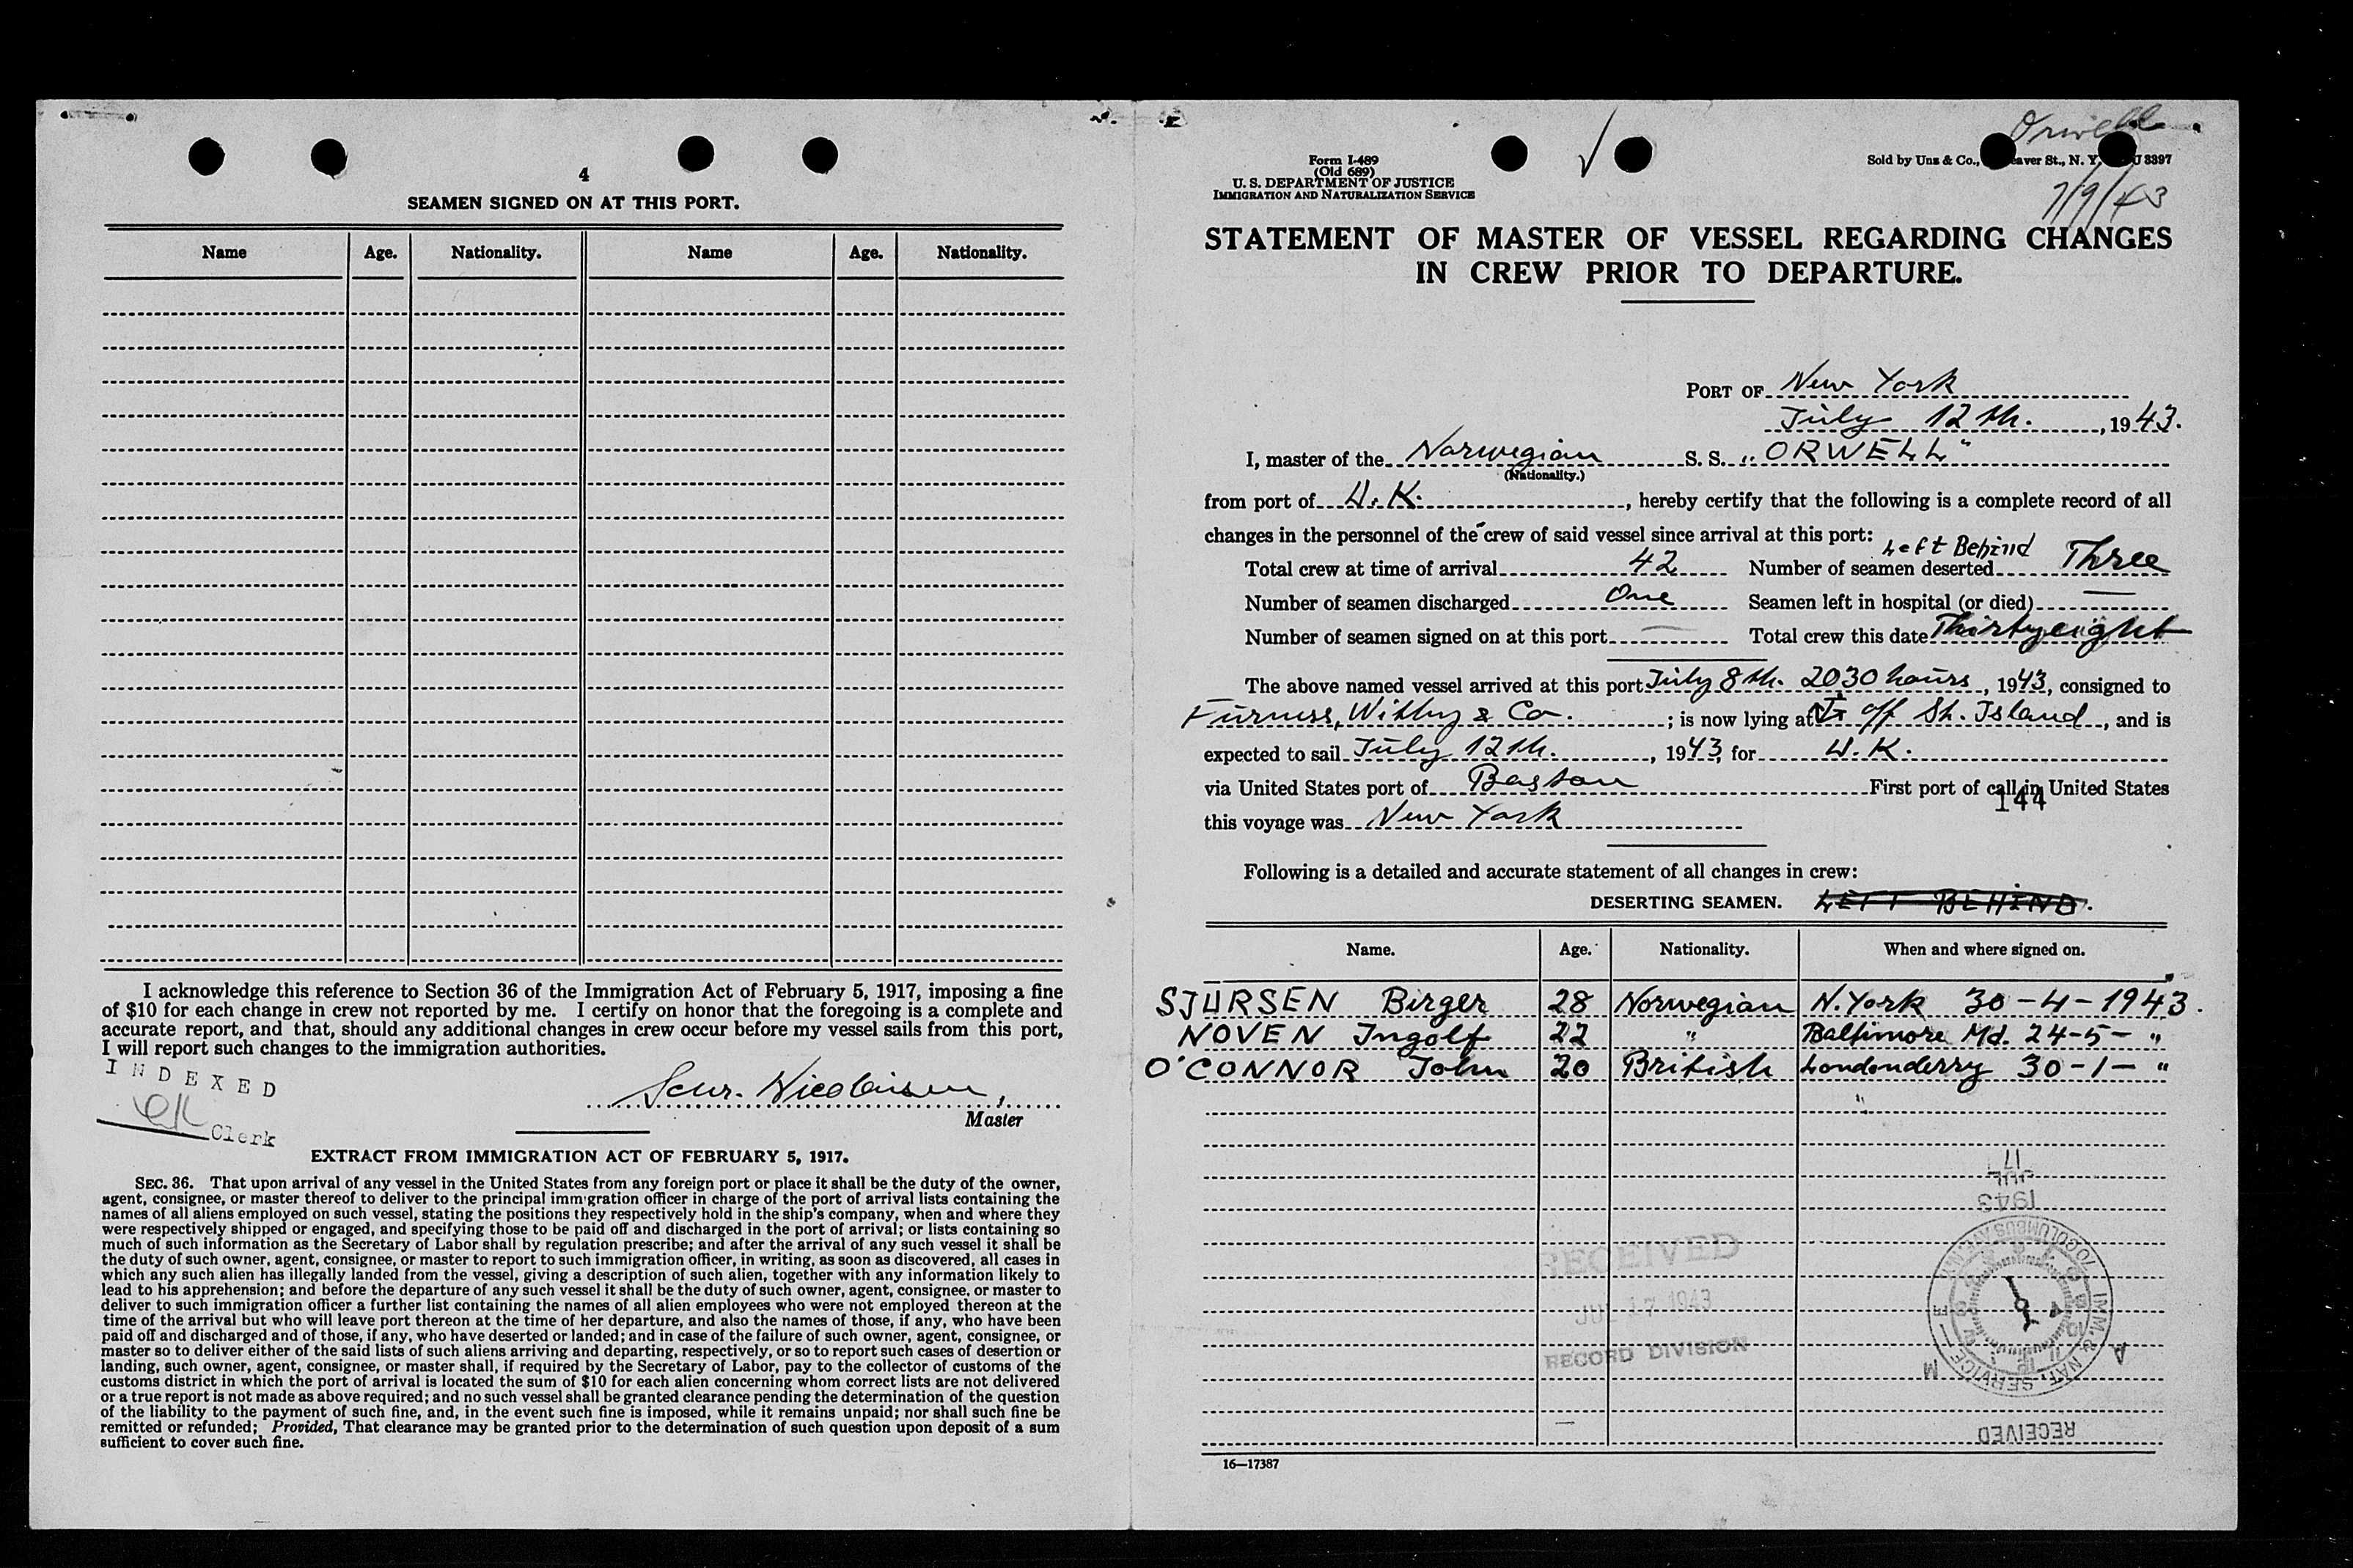 4
SEAMEN SIGNED ON AT THIS PORT.
Name Age. Nationality. Name Age. Nationality.
I acknowledge this reference to Section 36 of the Immigration Act of February 5, 1917, imposing a fine
of $10 for each change in crew not reported by me. I certify on honor that the foregoing is a complete and
accurate report, and that, should any additional changes in crew occur before my vessel sails from this port,
I will report such changes to the immigration authorities.
INDEXED
Clerk
Master
EXTRACT FROM IMMIGRATION ACT OF FEBRUARY 5, 1917.
SEC. 36. That upon arrival of any vessel in the United States from any foreign port or place it shall be the duty of the owner,
agent, consignee, or master thereof to deliver to the principal immigration officer in charge of the port of arrival lists containing the
names of all aliens employed on such vessel, stating the positions they respectively hold in the ship's company, when and where they
were respectively shipped or engaged, and specifying those to be paid off and discharged in the port of arrival; or lists containing so
much of such information as the Secretary of Labor shall by regulation prescribe; and after the arrival of any such vessel it shall be
the duty of such owner, agent, consignee, or master to report to such immigration officer, in writing, as soon as discovered, all cases in
which any such alien has illegally landed from the vessel, giving a description of such alien, together with any information likely to
lead to his apprehension; and before the departure of any such vessel it shall be the duty of such owner, agent, consignee, or master to
deliver to such immigration officer a further list containing the names of all alien employees who were not employed thereon at the
time of the arrival but who will leave port thereon at the time of her departure, and also the names of those, if any, who have been
paid off and discharged and of those, if any, who have deserted or landed; and in case of the failure of such owner, agent, consignee, or
master so to deliver either of the said lists of such aliens arriving and departing, respectively, or so to report such cases of desertion or
landing, such owner, agent, consignee, or master shall, if required by the Secretary of Labor, pay to the collector of customs of the
customs district in which the port of arrival is located the sum of $10 for each alien concerning whom correct lists are not delivered
or a true report is not made as above required; and no such vessel shall be granted clearance pending the determination of the question
of the liability to the payment of such fine, and, in the event such fine is imposed, while it remains unpaid; nor shall such fine be
remitted or refunded; Provided, That clearance may be granted prior to the determination of such question upon deposit of a sum
sufficient to cover such fine.
Orwell
Form I-489
(Old 689)
U. S. DEPARTMENT OF JUSTICE
IMMIGRATION AND NATURALIZATION SERVICE
Sold by Unz & Co., aver St., N. Y. 8397
7/9/43
STATEMENT OF MASTER OF VESSEL REGARDING CHANGES
IN CREW PRIOR TO DEPARTURE.
PORT OF New York
July 12th. , 1943.
I, master of the Norwegian S. S. „ORWELL"
(Nationality.)
from port of U.K. , hereby certify that the following is a complete record of all
changes in the personnel of the crew of said vessel since arrival at this port:
Left Behind
Total crew at time of arrival 42 Number of seamen deserted Three
Number of seamen discharged One Seamen left in hospital (or died) —
Number of seamen signed on at this port — Total crew this date Thirtyeight
The above named vessel arrived at this port July 8th. 2030 hours, 1943, consigned to
Furness, Withy & Co. ; is now lying at off St. Island, and is
expected to sail July 12th. , 1943, for U.K.
via United States port of Boston First port of call in United States
144
this voyage was New York
Following is a detailed and accurate statement of all changes in crew:
DESERTING SEAMEN. LEFT BEHIND.
Name. Age. Nationality. When and where signed on.
SJURSEN Birger 28 Norwegian N.York 30-4-1943.
NOVEN Ingolf 22 " Baltimore Md. 24-5- "
O'CONNOR John 20 British Londonderry 30-1- "
17
JUL
1943
70 COLUMBUS AVE
IMM. & NAT. SERVICE
A M
RECEIVED
RECEIVED
JUL 17 1943
RECORD DIVISION
16—17387